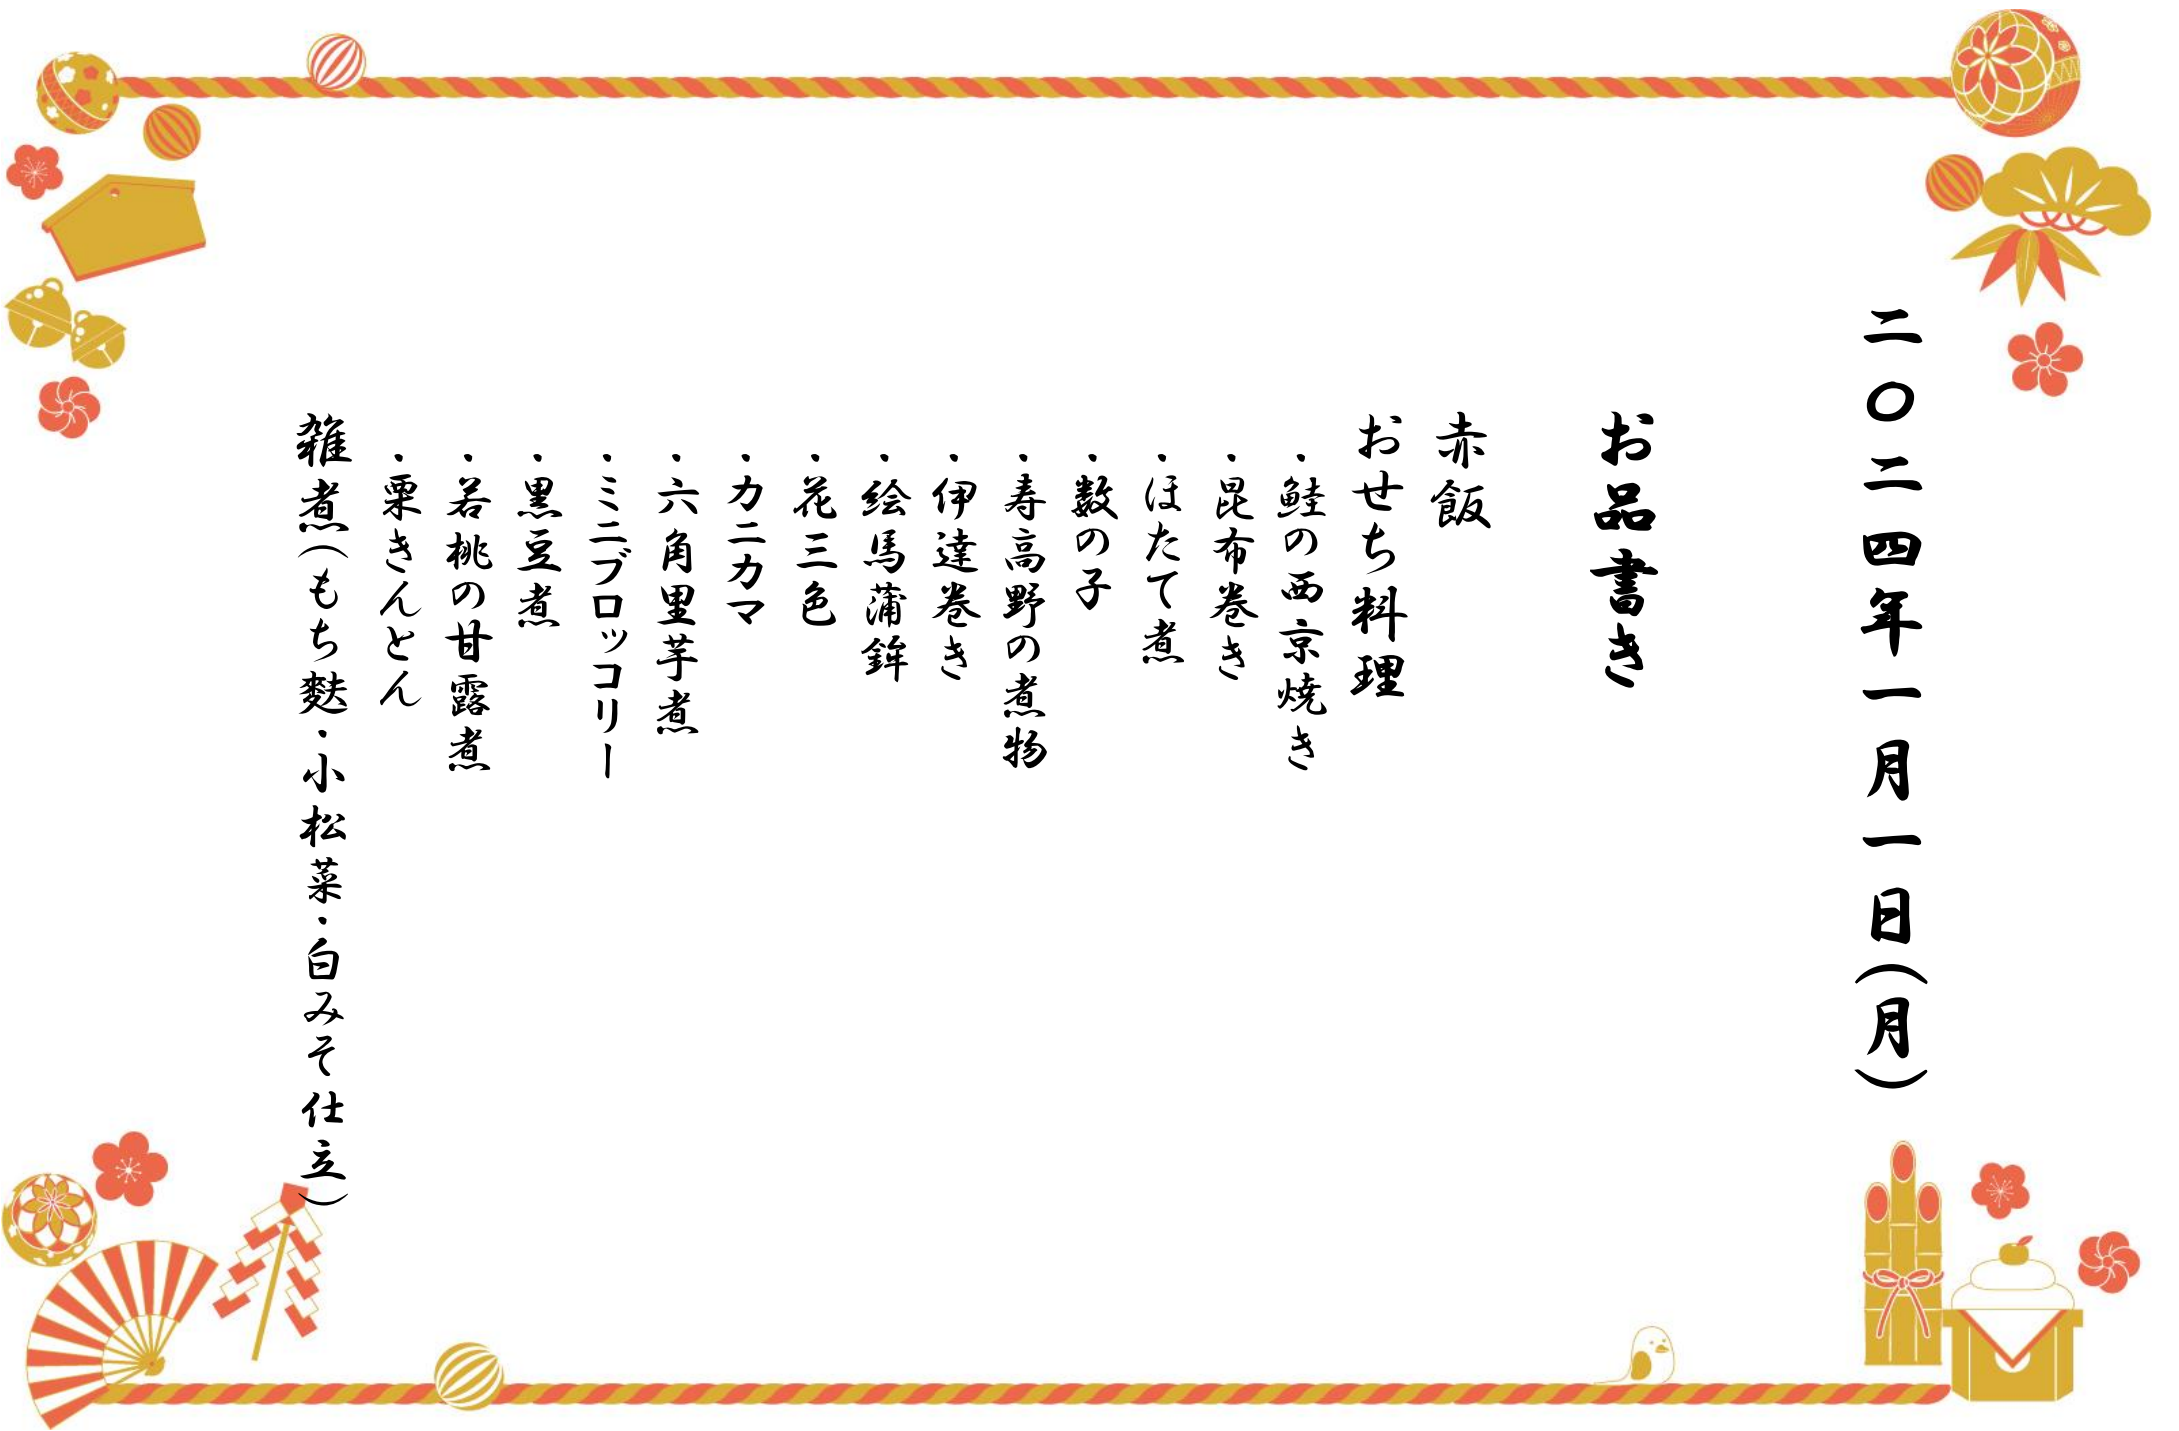 二〇二四年一月一日(月)
お品書き
赤飯
おせち料理
・鮭の西京焼き
・昆布巻き
・ほたて煮
・数の子
・寿高野の煮物
・伊達巻き
・絵馬蒲鉾
・花三色
・カニカマ
・六角里芋煮
・ミニブロッコリー
・黒豆煮
・若桃の甘露煮
・栗きんとん
雑煮(もち麩・小松菜・白みそ仕立)